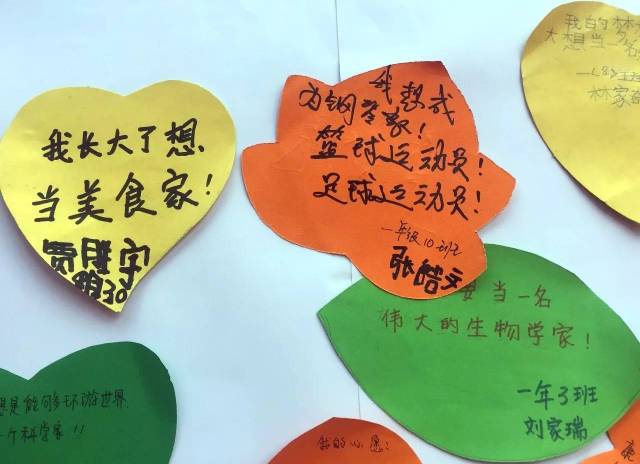 我长大了想
当美食家！
贾胜宇
我想成
为钢琴家！
篮球运动员！
足球运动员！
一年级10班
张皓文
大想当一名
林家
当一名
伟大的生物学家！
一年3班
刘家瑞
想是能够环游世界
个科学家！！
我的心愿：